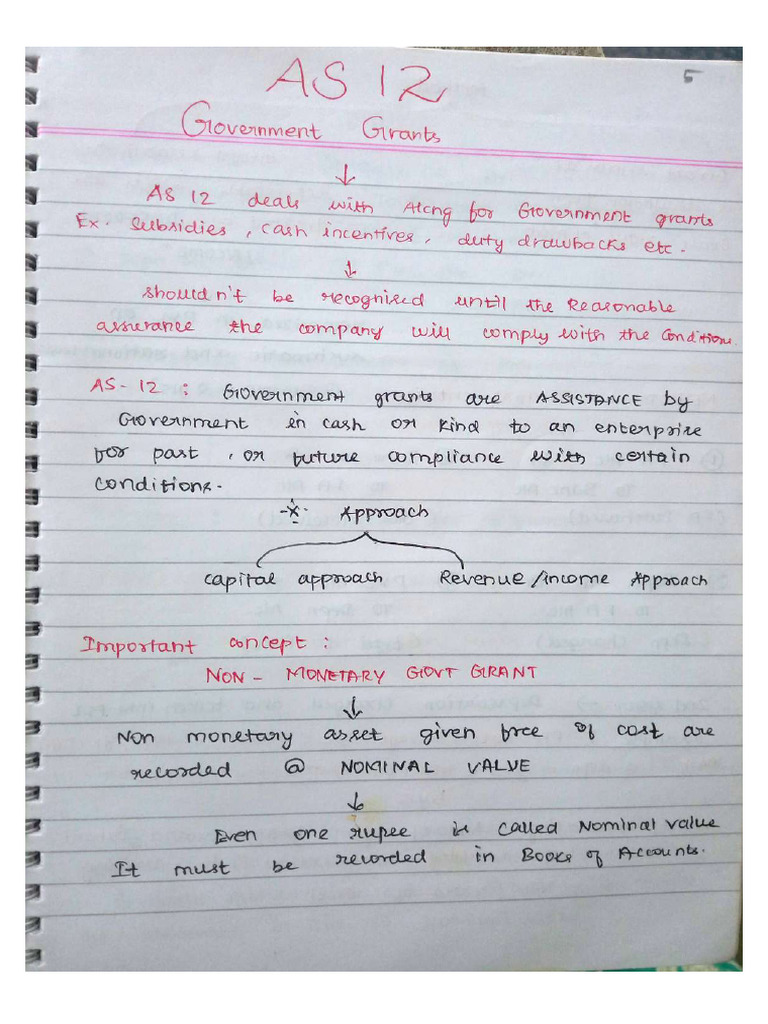 5
AS 12
Government Grants
↓
AS 12 deals with Atcng for Government grants
Ex. Subsidies, cash incentives, duty drawbacks etc.
↓
shouldn't be recognised until the Reasonable
assurance the company will comply with the Conditions.
AS-12: Government grants are ASSISTANCE by
Government in cash or kind to an enterprise
for past, or future compliance with certain
conditions.
-x- Approach
Capital approach Revenue/income Approach
Important concept:
NON - MONETARY GOVT GRANT
↓
Non monetary asset given free of cost are
recorded @ NOMINAL VALUE
↓
Even one rupee is called Nominal value
It must be recorded in Books of Accounts.